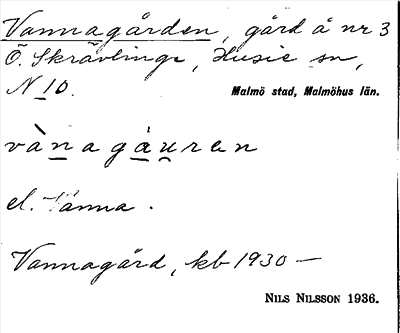 Vannagården, gård å nr 3
Ö. Skrävlinge, Husie sn,
N 10.
Malmö stad, Malmöhus län.
vànagáuren
el. 
Vannagård, kb 1930 —
NILS NILSSON 1936.